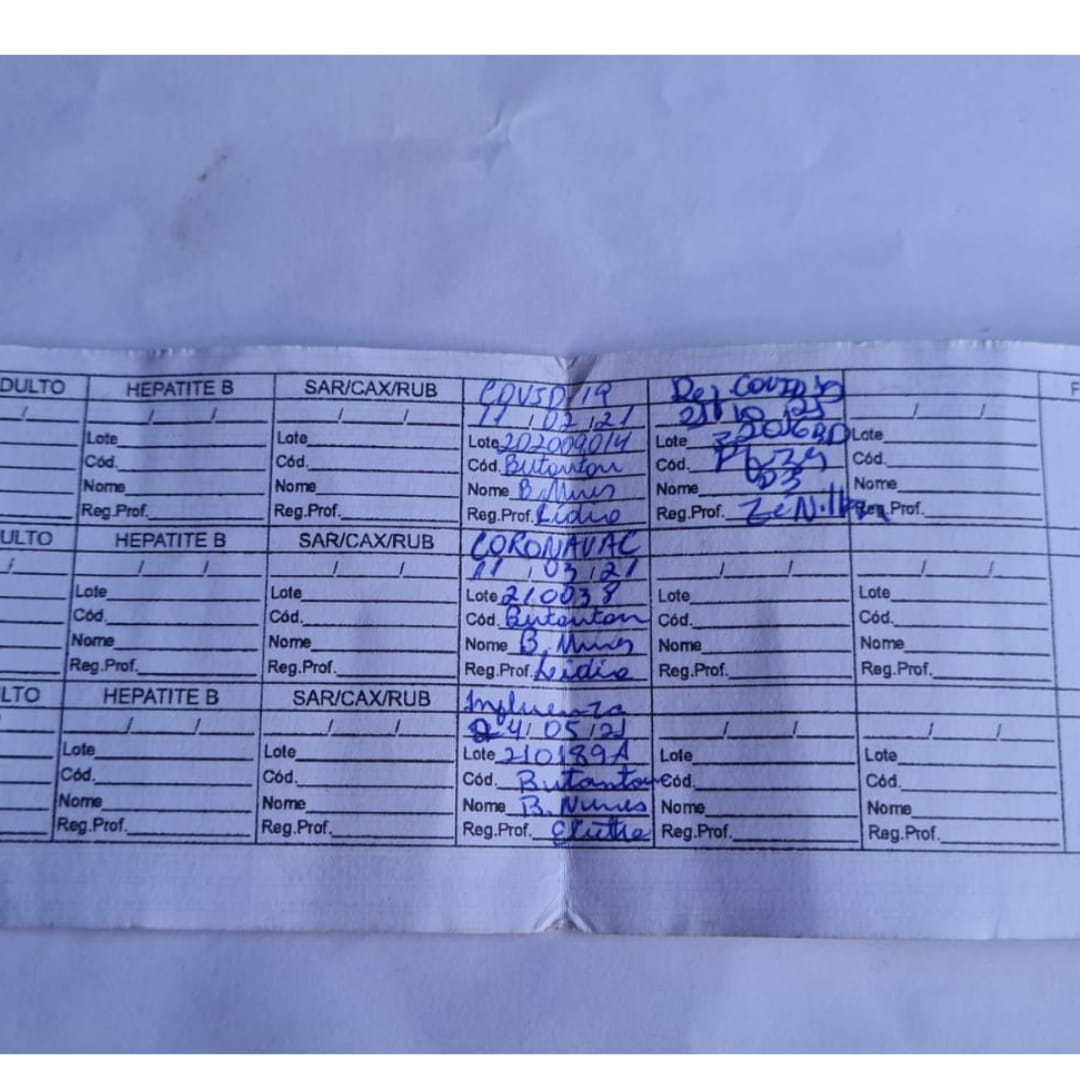 DULTO HEPATITE B SAR/CAX/RUB COVID 19 Ref COVID 19 F
/ / / / / 11 / 02 / 21 / /
Lote Lote Lote 202009014 Lote Lote
Cód. Cód. Cód. Butantan Cód. Cód.
Nome Nome Nome B. Nunes Nome Nome
Reg.Prof. Reg.Prof. Reg.Prof. Lidia Reg.Prof. Reg.Prof.
ULTO HEPATITE B SAR/CAX/RUB CORONAVAC
/ / / / / 11 / 03 / 21 / / / /
Lote Lote Lote 210038 Lote Lote
Cód. Cód. Cód. Butantan Cód. Cód.
Nome Nome Nome B. Nunes Nome Nome
Reg.Prof. Reg.Prof. Reg.Prof. Lidia Reg.Prof. Reg.Prof.
LTO HEPATITE B SAR/CAX/RUB Influenza
/ / / / 24 / 05 / 21 / / / /
Lote Lote Lote 210189A Lote Lote
Cód. Cód. Cód. Butantan Cód. Cód.
Nome Nome Nome B. Nunes Nome Nome
Reg.Prof. Reg.Prof. Reg.Prof. Reg.Prof. Reg.Prof.